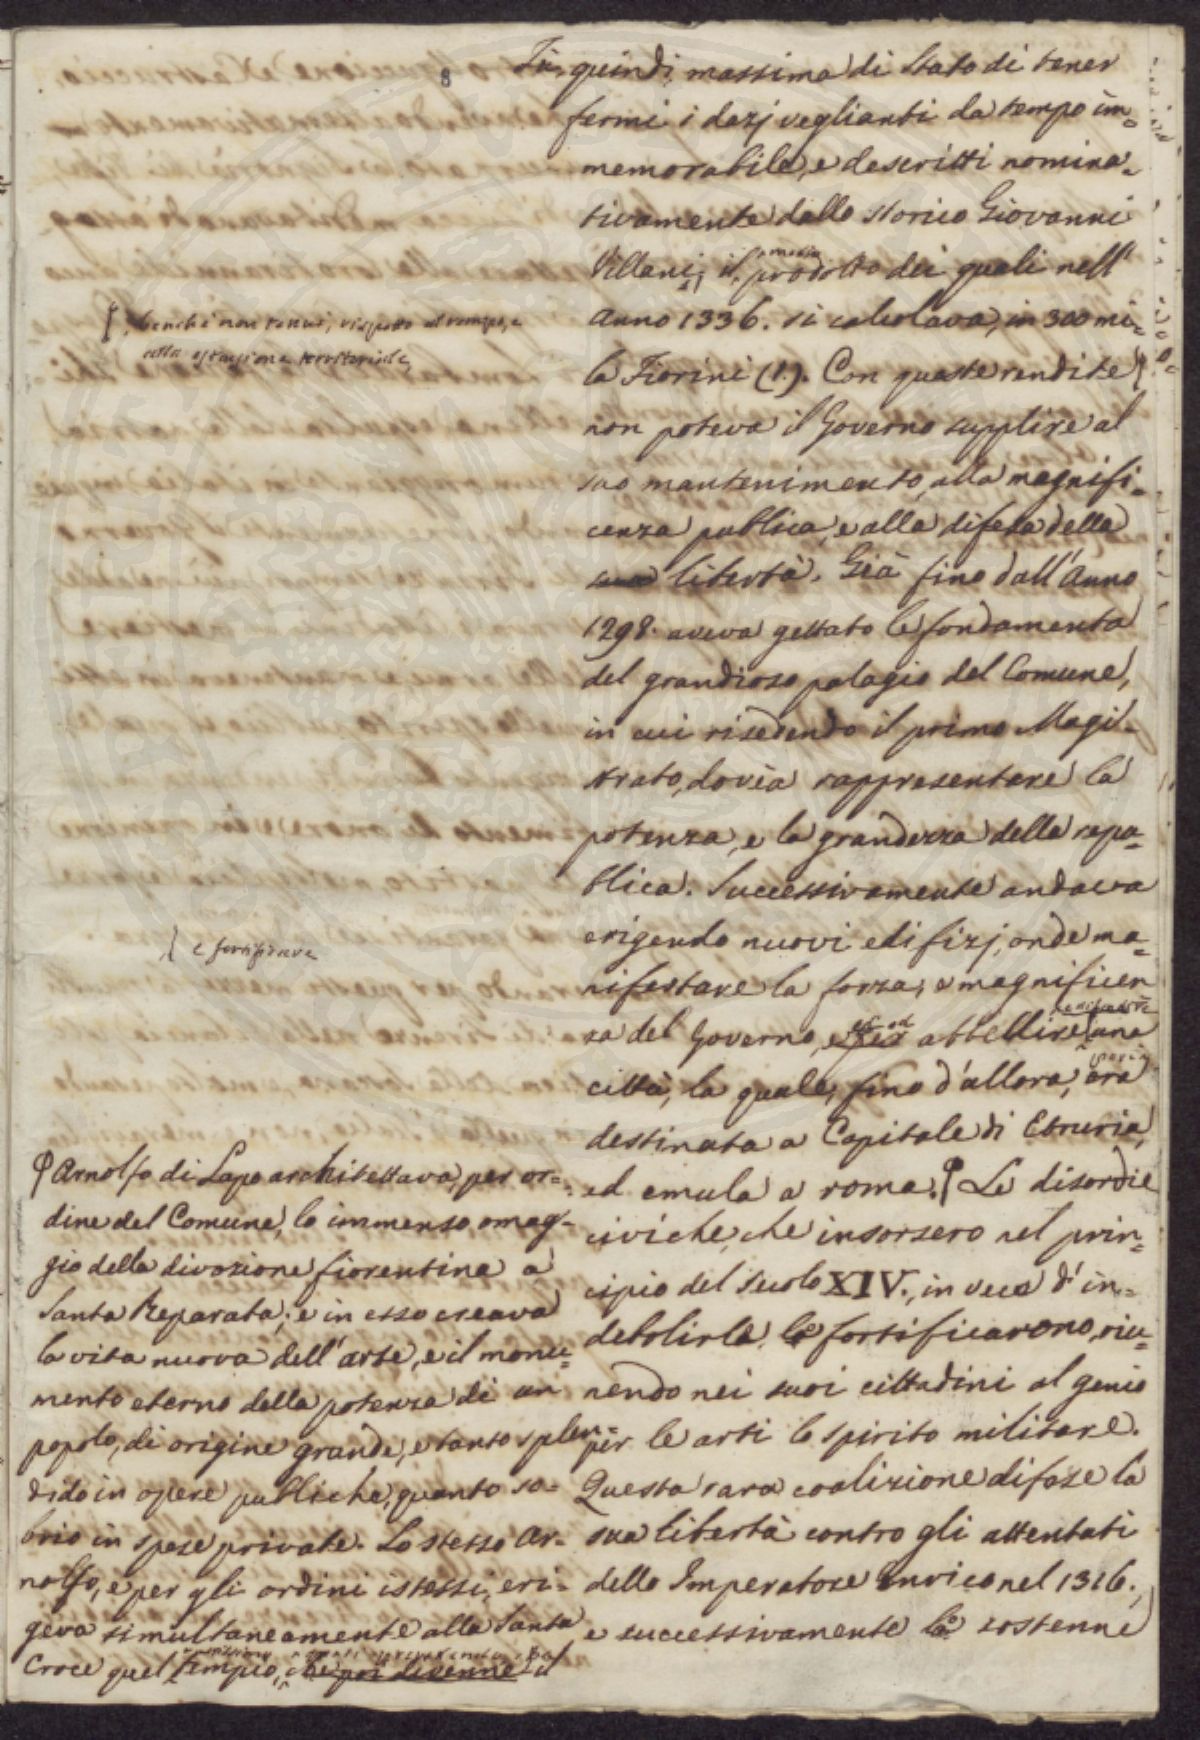 8
Fù, quindi, massima di Stato di tener
fermi i dazj veglianti da tempo im=
memorabile, e descritti nomina=
tivamente dallo storico Giovanni
Villani, il prodotto dei quali nell'
Anno 1336. si calcolava, in 300 mi=
la Fiorini (1.). Con queste rendite
non poteva il Governo supplire al
suo mantenimento, alla magnifi=
cenza publica, e alla difesa della
sua libertà. Già fino dall'Anno
1298. aveva gettato le fondamenta
del grandioso palagio del Comune,
in cui risedendo il primo Magi=
strato, dovea rappresentare la
potenza, e la grandezza della repu=
blica. Successivamente andava
erigendo nuovi edifizj, onde ma=
nifestare la forza, e magnificen
za del Governo, ed abbellire una
città, la quale, fino d'allora, era
destinata a Capitale di Etruria,
ed emula a roma. Le disordie
civiche, che insorsero nel prin=
cipio del secolo XIV., in vece d'in=
debolirla, la fortificarono, riu=
nendo nei suoi cittadini al genio
per le arti lo spirito militare.
Questa rara coalizione difese la
sua libertà contro gli attentati
dello Imperatore Enrico nel 1316.,
e successivamente la sostenne
benchè non tenui, rispetto al tempo, e
alla estensione territoriale,
e fortificare
Arnolfo di Lapo architettava, per or=
dine del Comune, lo immenso omag=
gio della divozione fiorentina a
Santa Reparata; e in esso creava
la vita nuova dell'arte, e il monu=
mento eterno della potenza di un
popolo, di origine grande, e tanto splen=
dido in opere publiche, quanto so=
brio in spese private. Lo stesso Ar=
nolfo, e per gli ordini istessi, eri=
geva simultaneamente alla Santa
Croce quel tempio, che poi divenne il